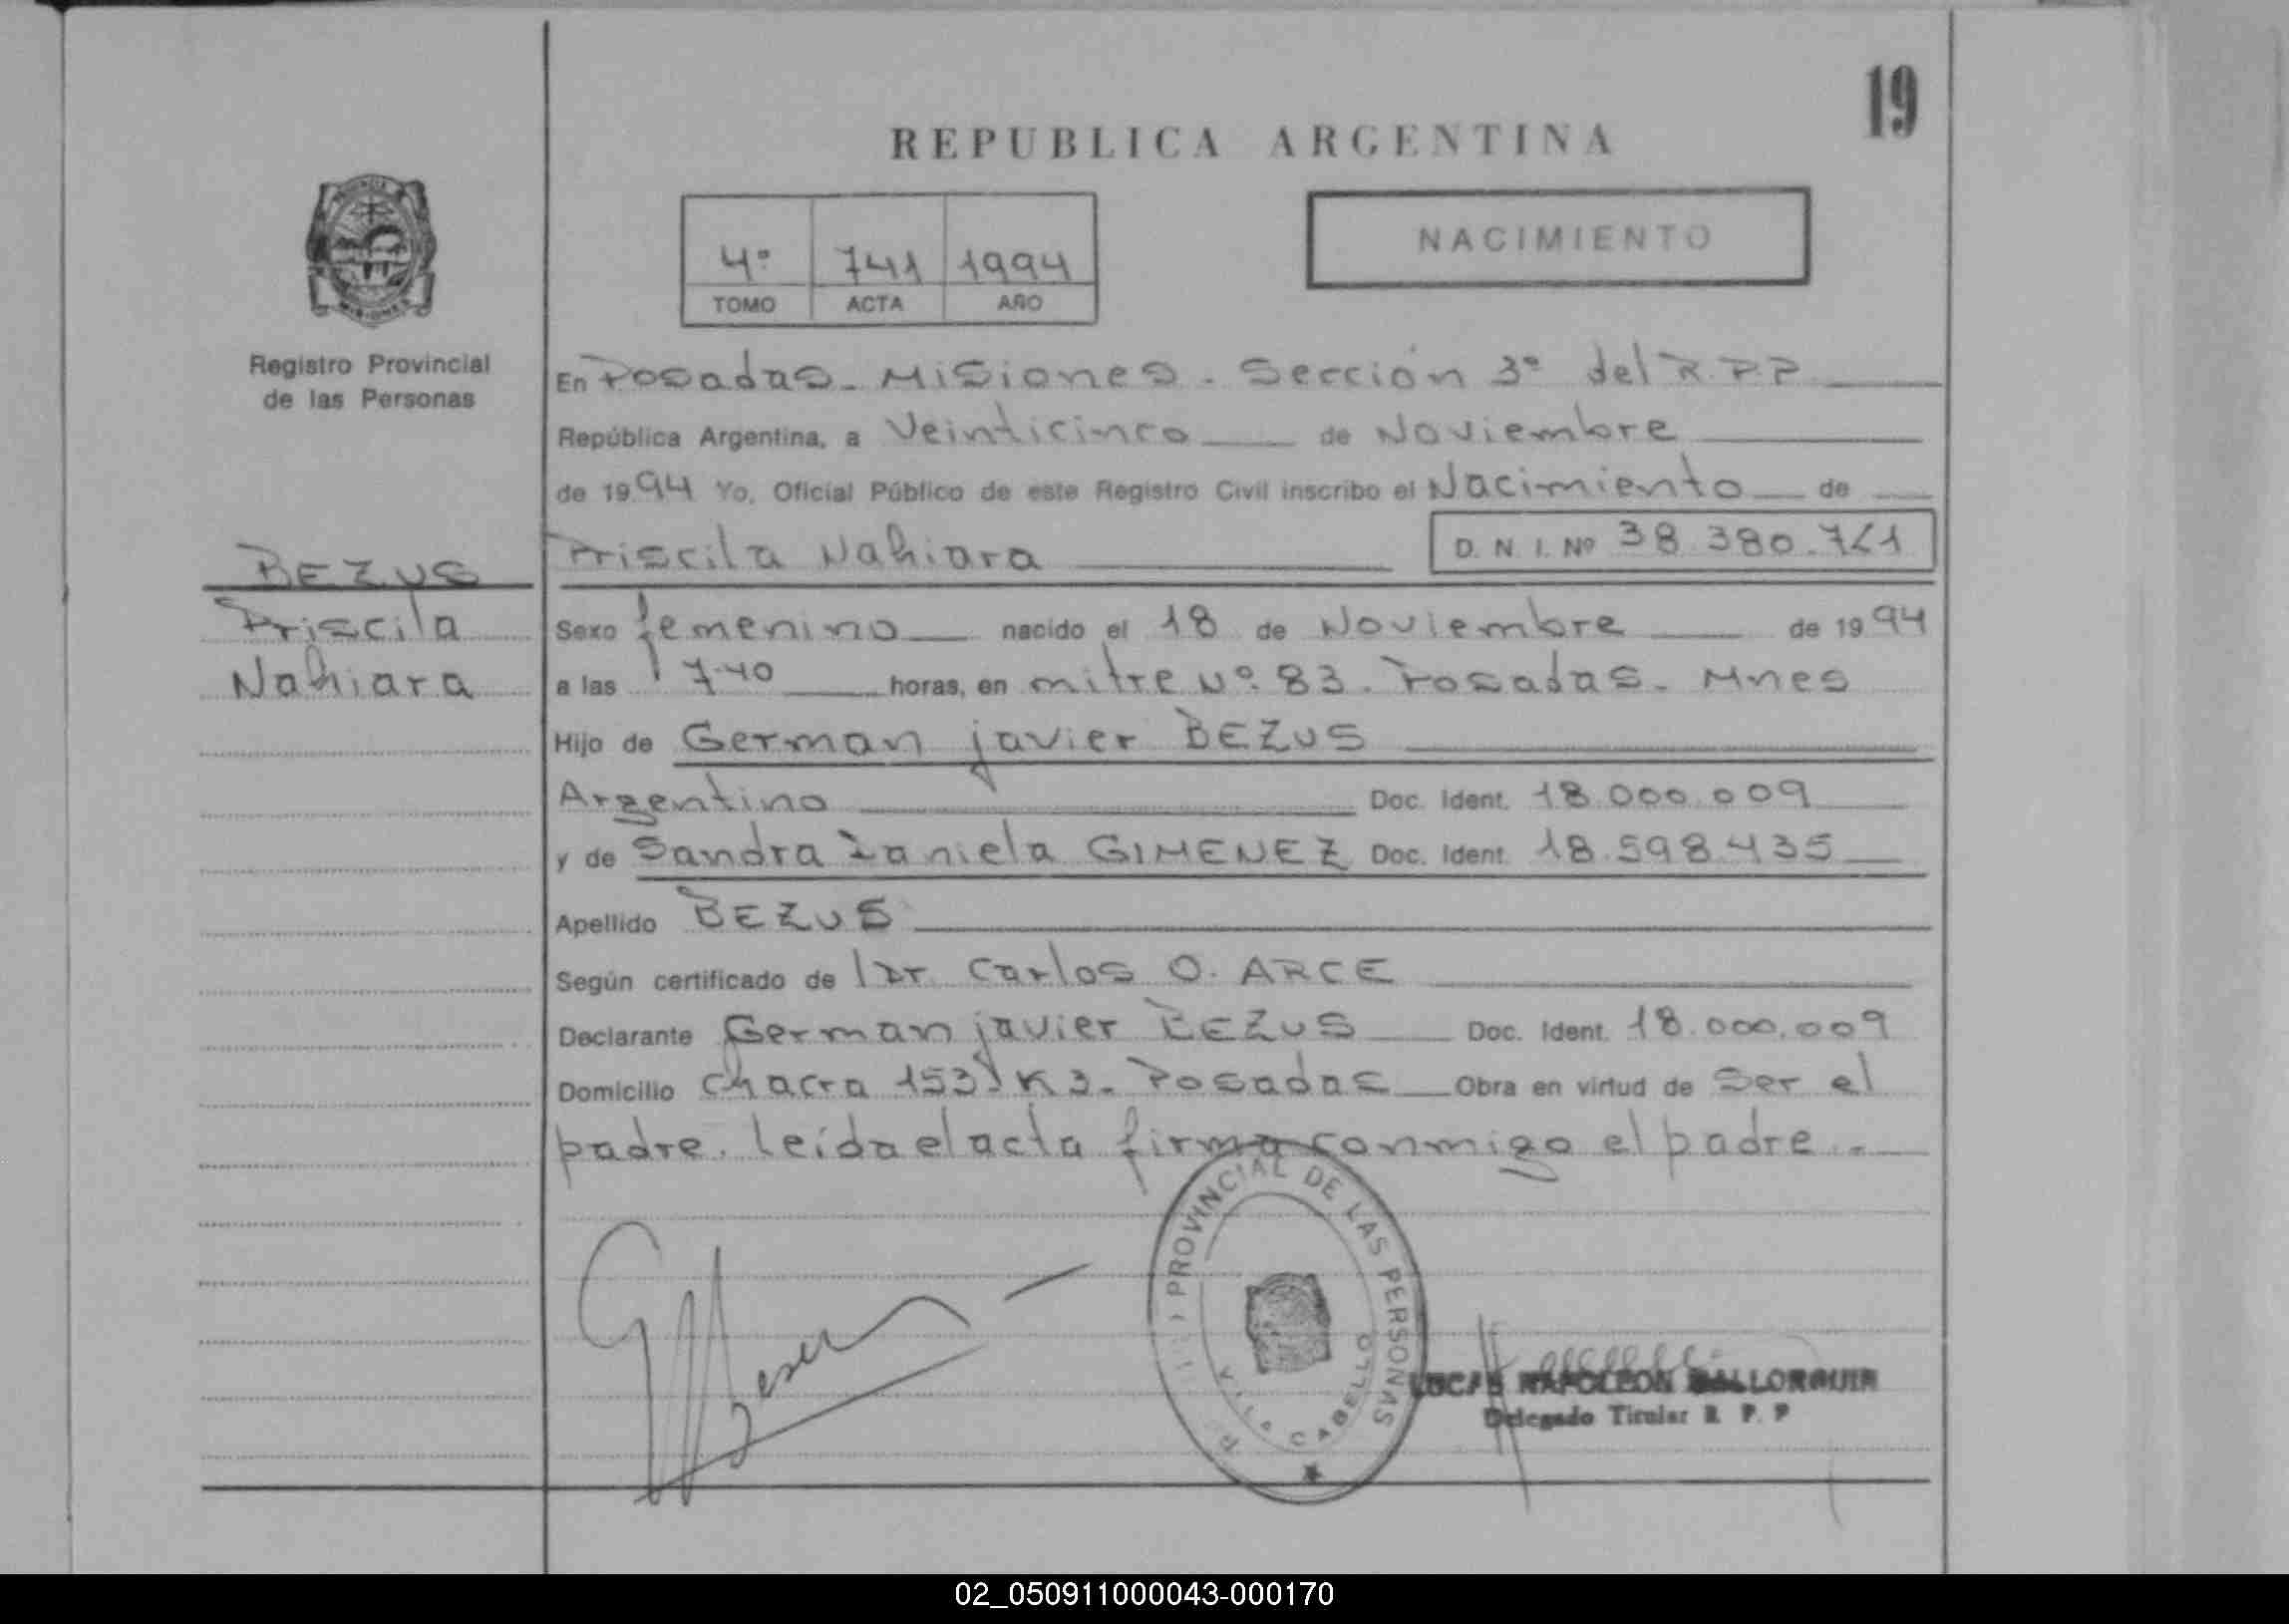 19
REPUBLICA ARGENTINA
4º 741 1994
TOMO ACTA AÑO
NACIMIENTO
Registro Provincial
de las Personas
En Posadas - Misiones - Sección 3º del R.P.P.
República Argentina, a Veinticinco de Noviembre
de 1994 Yo, Oficial Público de este Registro Civil inscribo el Nacimiento de
Priscila Nahiara D.N.I. Nº 38.380.741
BEZUS
Priscila
Nahiara
Sexo femenino nacido el 18 de Noviembre de 1994
a las 17-40 horas, en mitre Nº 83. Posadas - Mnes
Hijo de German javier BEZUS
Argentino Doc. Ident. 18.000.009
y de Sandra Daniela GIMENEZ Doc. Ident. 18.598.435
Apellido BEZUS
Según certificado de Dr. Carlos O. ARCE
Declarante German javier BEZUS Doc. Ident. 18.000.009
Domicilio chacra 153 K3 - Posadas Obra en virtud de ser el
padre. leída el acta firma conmigo el padre.-
PROVINCIAL DE LAS PERSONAS
VILLA CABELLO
LUCAS NAPOLEON BALLORQUIN
Delegado Titular R. P. P
02_050911000043-000170